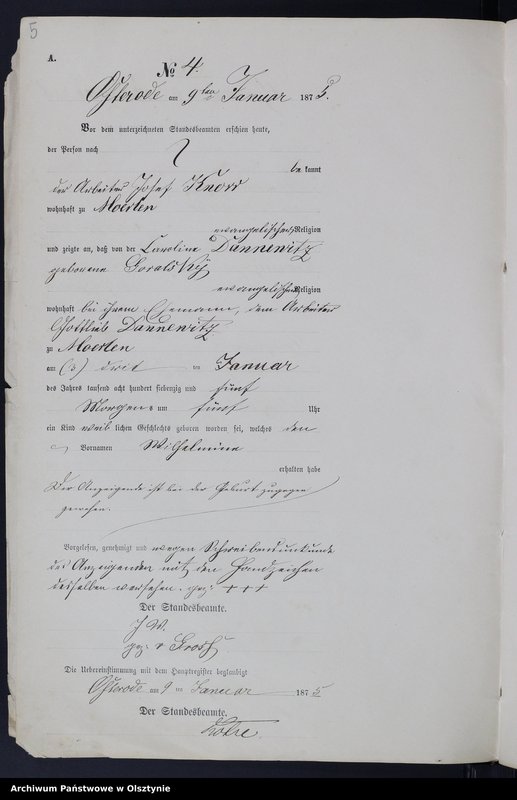 5
A.
№ 4.
Osterode am 9ten Januar 1875.
Vor dem unterzeichneten Standesbeamten erschien heute,
der Person nach
be kannt
der Arbeiter Josef Knorr
wohnhaft zu Moerlen
evangelischer Religion
und zeigte an, daß von der Caroline Dannewitz
geborene Soralsky
evangelischer Religion
wohnhaft bei ihrem Ehemann, dem Arbeiter
Gottlieb Dannewitz
zu Moerlen
am (3) drit ten Januar
des Jahrs tausend acht hundert siebenzig und fünf
Morgens um fünf Uhr
ein Kind weib lichen Geschlechts geboren worden sei, welches den
Vornamen Wilhelmine
erhalten habe
Der Anzeigende ist bei der Geburt zugegen
gewesen.
Vorgelesen, genehmigt und wegen Schreibensunkunde
des Anzeigenden mit den Handzeichen
desselben versehen. gez: +++
Der Standesbeamte.
J. V.
gez: v Grosh
Die Uebereinstimmung mit dem Hauptregister beglaubigt
Osterode am 9 ten Januar 1875
Der Standesbeamte.
Archiwum Państwowe w Olsztynie